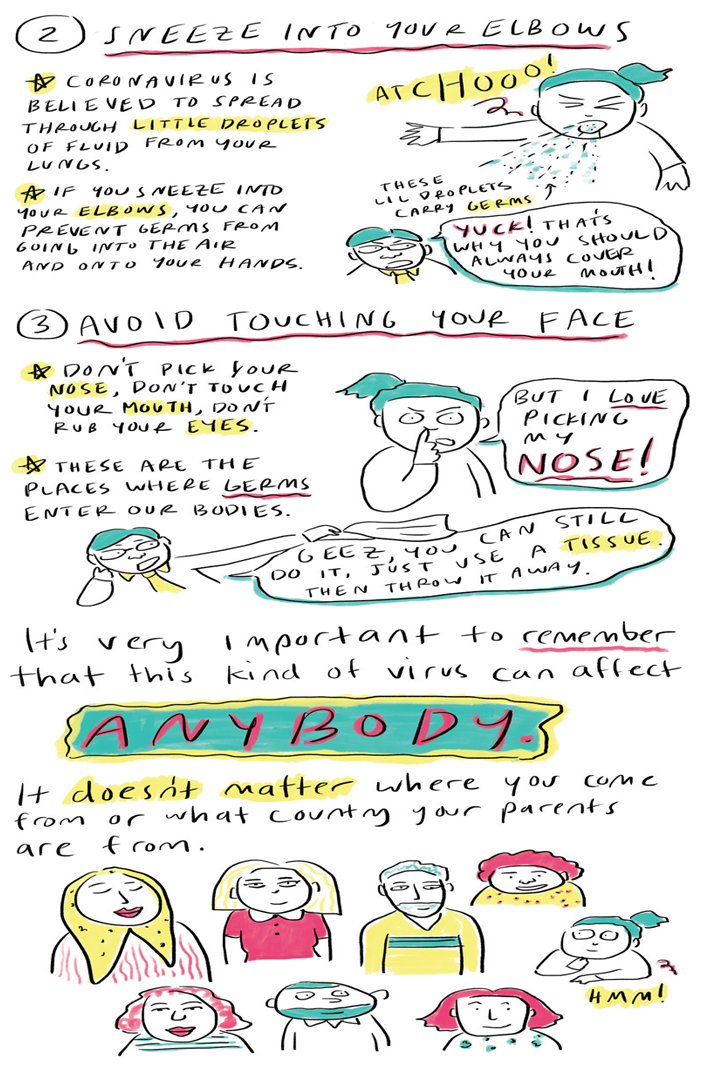 2 SNEEZE INTO YOUR ELBOWS
CORONAVIRUS IS
BELIEVED TO SPREAD
THROUGH LITTLE DROPLETS
OF FLUID FROM YOUR
LUNGS.
ATCHOOO!
IF YOU SNEEZE INTO
YOUR ELBOWS, YOU CAN
PREVENT GERMS FROM
GOING INTO THE AIR
AND ONTO YOUR HANDS.
THESE
LIL DROPLETS
CARRY GERMS
YUCK! THAT'S
WHY YOU SHOULD
ALWAYS COVER
YOUR MOUTH!
3 AVOID TOUCHING YOUR FACE
DON'T PICK YOUR
NOSE, DON'T TOUCH
YOUR MOUTH, DON'T
RUB YOUR EYES.
THESE ARE THE
PLACES WHERE GERMS
ENTER OUR BODIES.
BUT I LOVE
PICKING
MY
NOSE!
GEEZ, YOU CAN STILL
DO IT, JUST USE A TISSUE.
THEN THROW IT AWAY.
It's very important to remember
that this kind of virus can affect
ANYBODY.
It doesn't matter where you come
from or what country your parents
are from.
HMM!